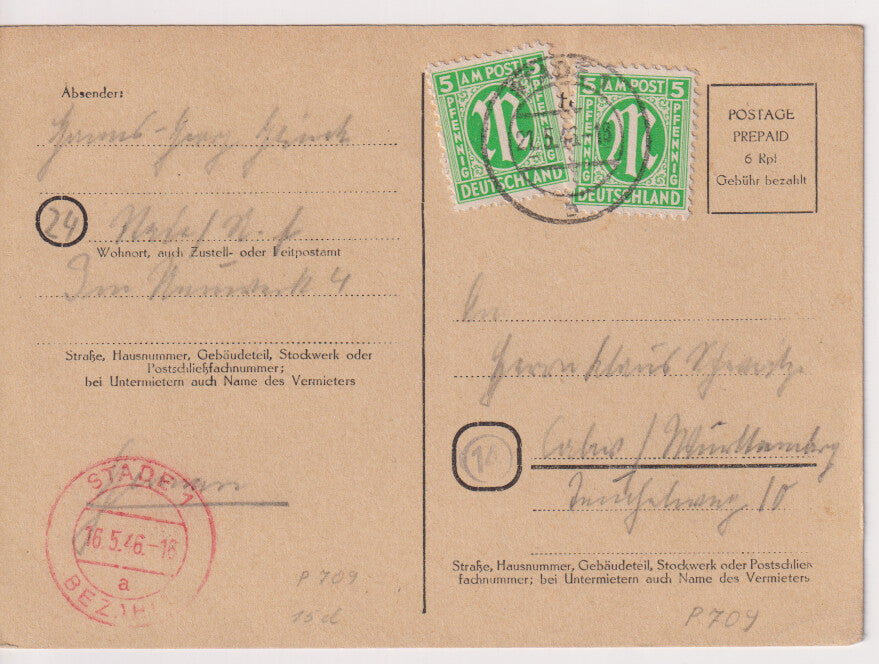 Absender:
Hanns-Georg
24
Wohnort, auch Zustell- oder Leitpostamt
4
Straße, Hausnummer, Gebäudeteil, Stockwerk oder
Postschließfachnummer;
bei Untermietern auch Name des Vermieters
STADE 1
16.5.46.-18
a
BEZAHLT
P 709
15d
5 AM POST 5
PFENNIG PFENNIG
M
DEUTSCHLAND
5 AM POST 5
PFENNIG PFENNIG
M
DEUTSCHLAND
POSTAGE
PREPAID
6 Rpf
Gebühr bezahlt
An
Herrn Klaus
14
Calw / Württemberg
10
Straße, Hausnummer, Gebäudeteil, Stockwerk oder Postschließ
fachnummer; bei Untermietern auch Name des Vermieters
P709